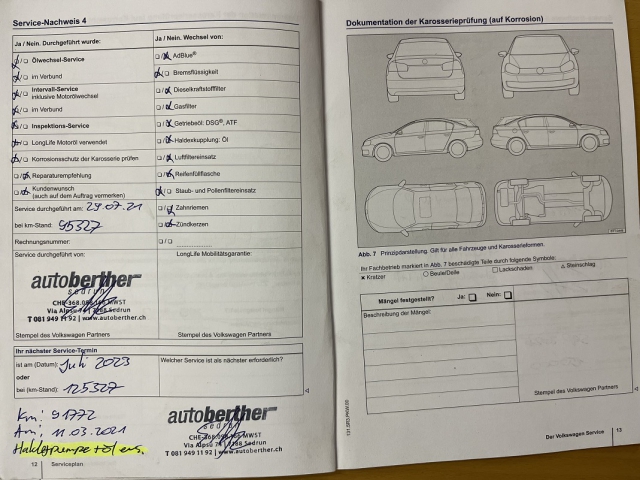 Service-Nachweis 4
Ja / Nein. Durchgeführt wurde:
Ölwechsel-Service
im Verbund
Intervall-Service
inklusive Motorölwechsel
im Verbund
Inspektions-Service
LongLife Motoröl verwendet
Korrosionsschutz der Karosserie prüfen
Reparaturempfehlung
Kundenwunsch
(auch auf dem Auftrag vermerken)
Service durchgeführt am: 29.07.21
bei km-Stand: 95327
Rechnungsnummer:
Service durchgeführt von:
autoberther
sedrun
CHE-368.086.166 MWST
Via Alpsu 74 | 7188 Sedrun
T 081 949 11 92 | www.autoberther.ch
Stempel des Volkswagen Partners
Ja / Nein. Wechsel von:
AdBlue®
Bremsflüssigkeit
Dieselkraftstofffilter
Gasfilter
Getriebeöl: DSG®, ATF
Haldexkupplung: Öl
Luftfiltereinsatz
Reifenfüllflasche
Staub- und Pollenfiltereinsatz
Zahnriemen
Zündkerzen
LongLife Mobilitätsgarantie:
Stempel des Volkswagen Partners
Ihr nächster Service-Termin
ist am (Datum): Juli 2023
oder
bei (km-Stand): 125327
Welcher Service ist als nächster erforderlich?
Km: 91772
Am: 11.03.2021
autoberther
sedrun
MWST
Via Alpsu 74 | 7188 Sedrun
T 081 949 11 92 | www.autoberther.ch
12 Serviceplan
Dokumentation der Karosserieprüfung (auf Korrosion)
Abb. 7 Prinzipdarstellung. Gilt für alle Fahrzeuge und Karosserieformen.
Ihr Fachbetrieb markiert in Abb. 7 beschädigte Teile durch folgende Symbole:
× Kratzer ○ Beule/Delle □ Lackschaden △ Steinschlag
Mängel festgestellt? Ja: Nein:
Beschreibung der Mängel:
Stempel des Volkswagen Partners
Der Volkswagen Service 13